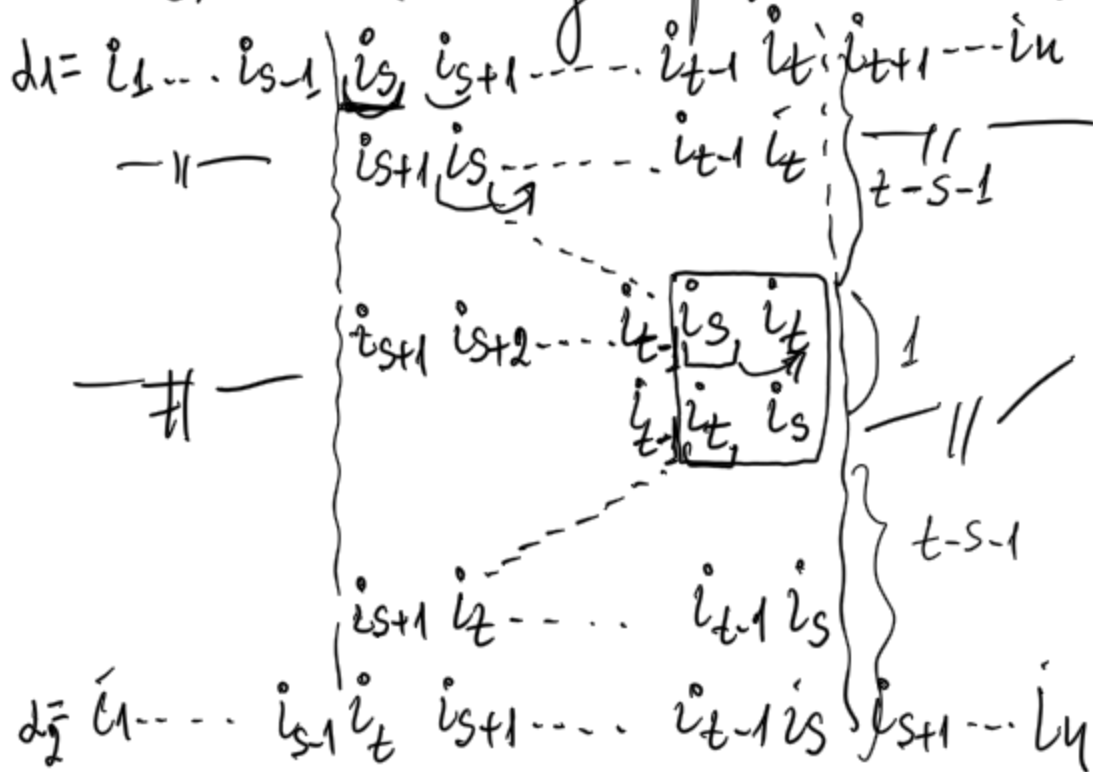 α1= i1.... is-1 is is+1-------. it-1 it it+1----in
—||— is+1 is-----. it-1 it —||—
t-s-1
is+1 is+2----. it-1 is it 1
—||— it-1 it is —||—
t-s-1
is+1 it---.. it-1 is
α2= i1---.. is-1 it is+1---.. it-1 is is+1---in